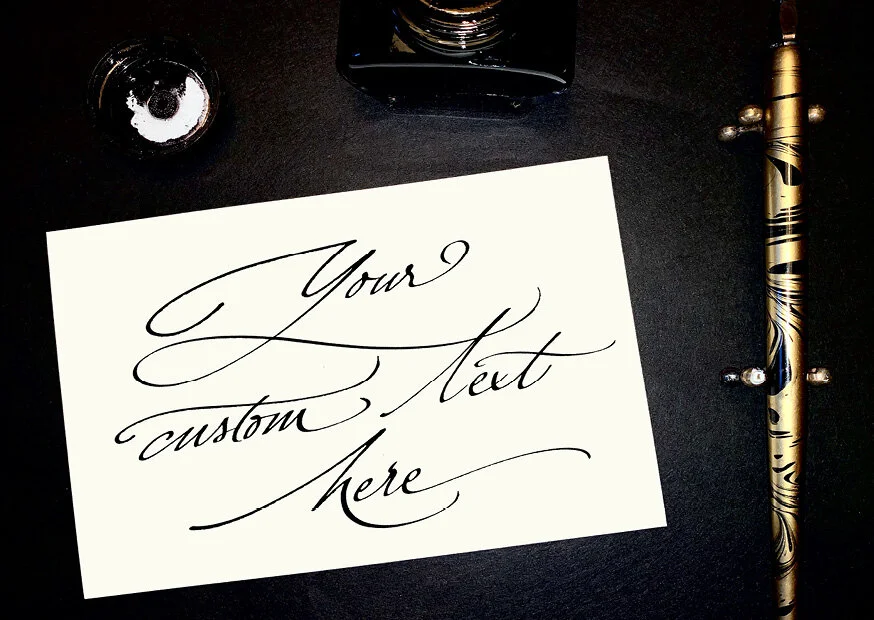 Your
custom text
here